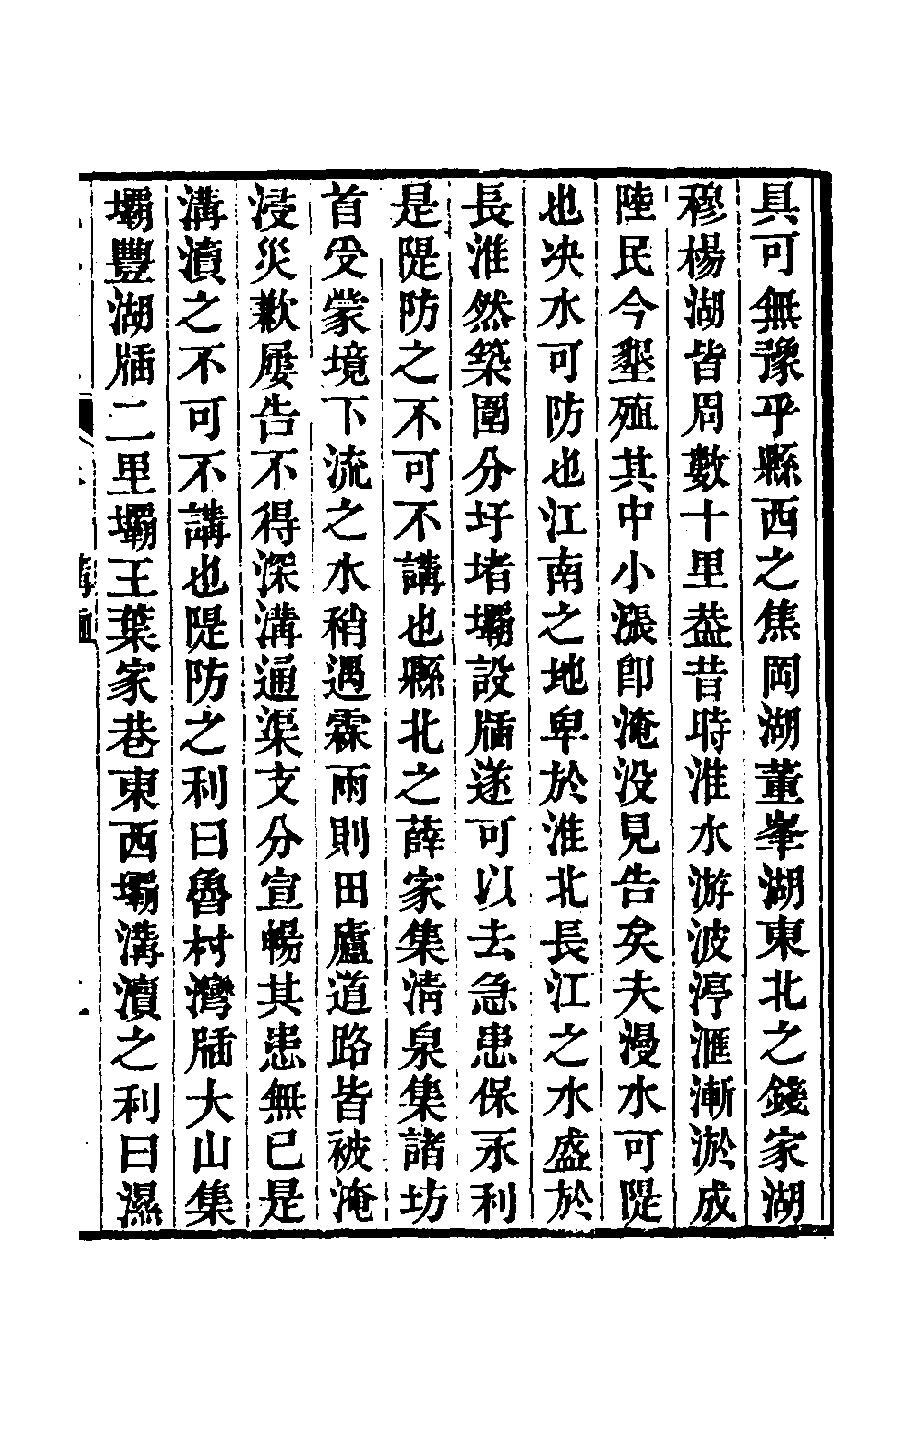 具可無豫乎縣西之焦岡湖董峯湖東北之錢家湖
穆楊湖皆周數十里葢昔時淮水游波渟滙漸淤成
陸民今墾殖其中小漲卽淹没見告矣夫漫水可隄
也决水可防也江南之地卑於淮北長江之水盛於
長淮然築圍分圩堵壩設牐遂可以去急患保永利
是隄防之不可不講也縣北之薛家集清泉集諸坊
首受蒙境下流之水稍遇霖雨則田廬道路皆被淹
浸災歉屡告不得深溝通渠支分宣暢其患無已是
溝瀆之不可不講也隄防之利曰魯村灣牐大山集
壩豐湖牐二里壩王葉家巷東西壩溝瀆之利曰濕